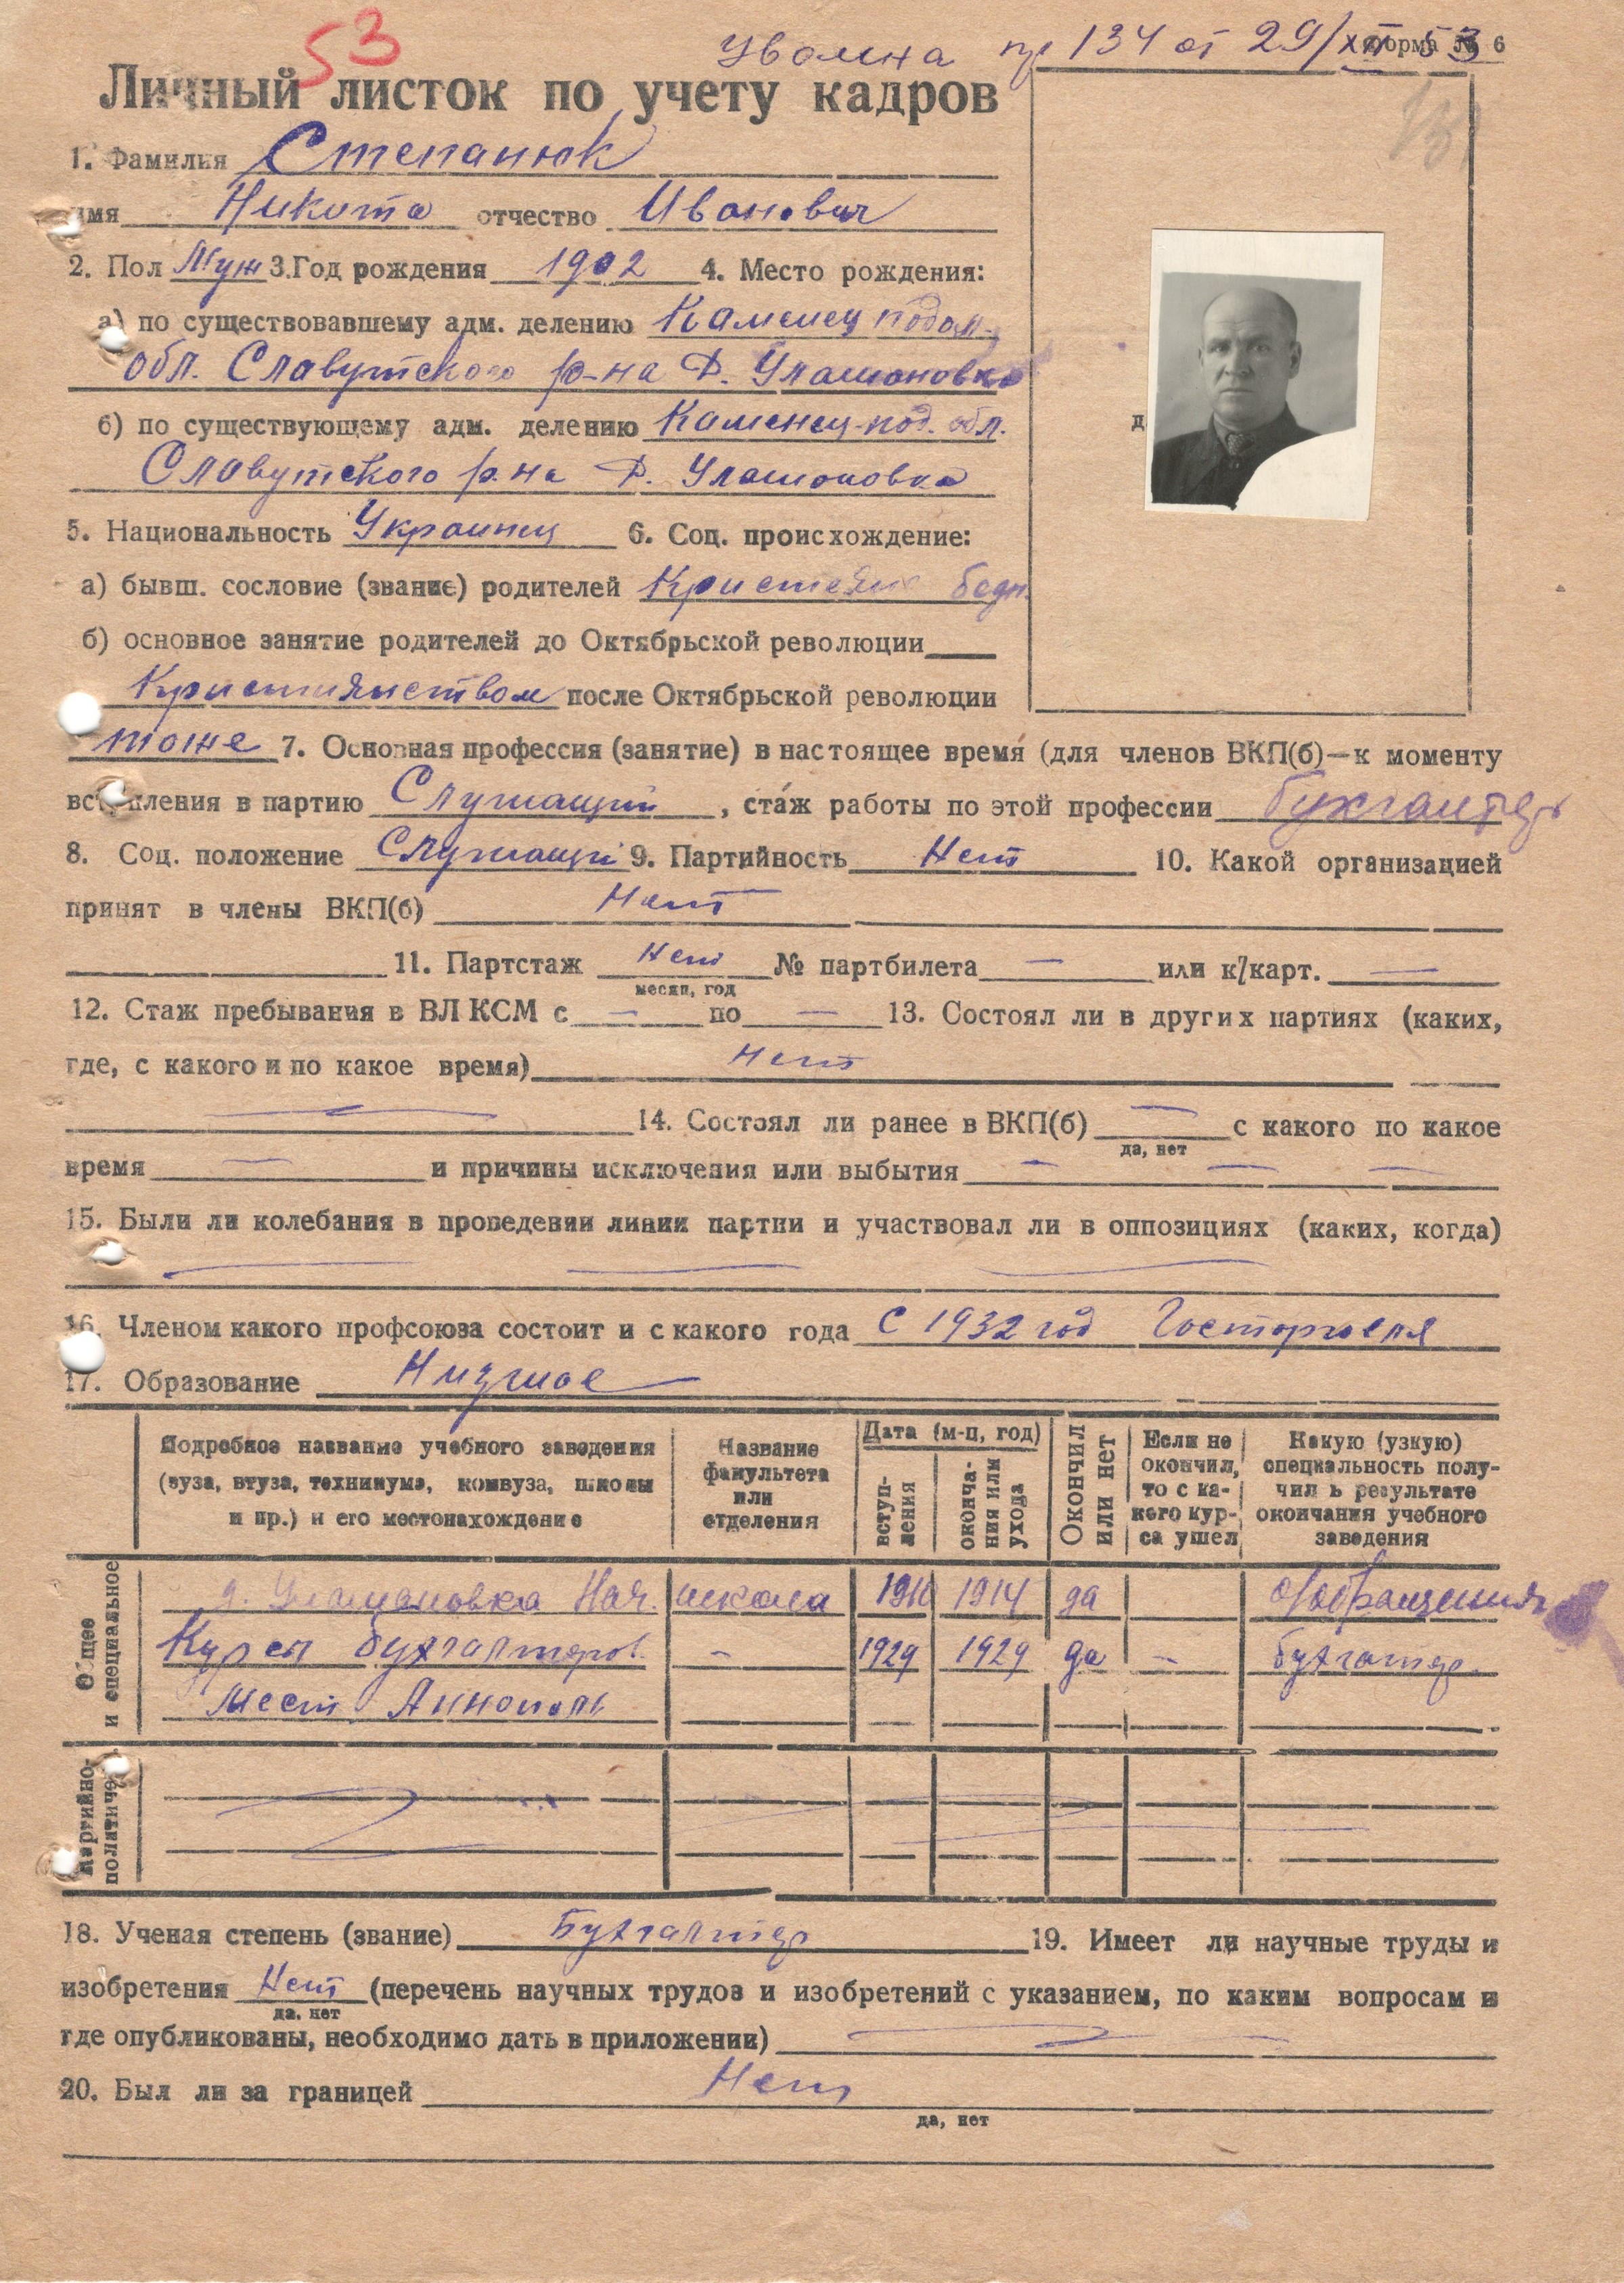 53
пр 134 от 29/XII 53
Форма № 6
Личный листок по учету кадров
1. Фамилия Степанюк
имя Никита отчество Иванович
2. Пол Муж 3. Год рождения 1902 4. Место рождения:
а) по существовавшему адм. делению Каменец подол.
обл. Славутского р-на д. Улашоновка
б) по существующему адм. делению Каменец-под. обл.
Славутского р-на д. Улашоновка
5. Национальность Украинец 6. Соц. происхождение:
а) бывш. сословие (звание) родителей Кристьяне бедн.
б) основное занятие родителей до Октябрьской революции
Кристиянством после Октябрьской революции
тоже 7. Основная профессия (занятие) в настоящее время (для членов ВКП(б)—к моменту
вступления в партию Служащий, стаж работы по этой профессии бухгалтер
8. Соц. положение Служащий 9. Партийность Нет 10. Какой организацией
принят в члены ВКП(б) Нет
11. Партстаж Нет № партбилета — или к/карт. —
месяц, год
12. Стаж пребывания в ВЛКСМ с — по — 13. Состоял ли в других партиях (каких,
где, с какого и по какое время) Нет
— 14. Состоял ли ранее в ВКП(б) — с какого по какое
да, нет
время — и причины исключения или выбытия — — —
15. Были ли колебания в проведении линии партии и участвовал ли в оппозициях (каких, когда)
— — —
16. Членом какого профсоюза состоит и с какого года С 1932 год Госторговля
17. Образование Низшое
Подробное название учебного заведения (вуза, втуза, техникума, комвуза, школы и пр.) и его местонахождение
Название факультета или отделения
Дата (м-ц, год)
вступления
окончания или ухода
Окончил или нет
Если не окончил, то с какого курса ушел
Какую (узкую) специальность получил в результате окончания учебного заведения
Общее и специальное
д. Улашановка Нач. школа 1910 1914 да —
Курсы бухгалтеров — 1929 1929 да — бухгалтер
мест Аннополь
Партийно-политическ.
18. Ученая степень (звание) Бухгалтер 19. Имеет ли научные труды и
изобретения Нет (перечень научных трудов и изобретений с указанием, по каким вопросам и
да, нет
где опубликованы, необходимо дать в приложении) —
20. Был ли за границей Нет
да, нет